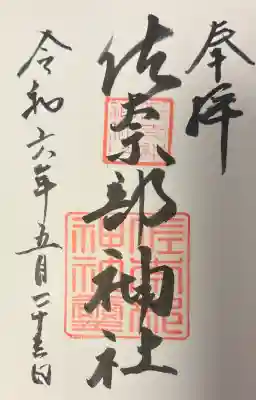 奉拝
佐奈部神社
令和六年五月二十五日